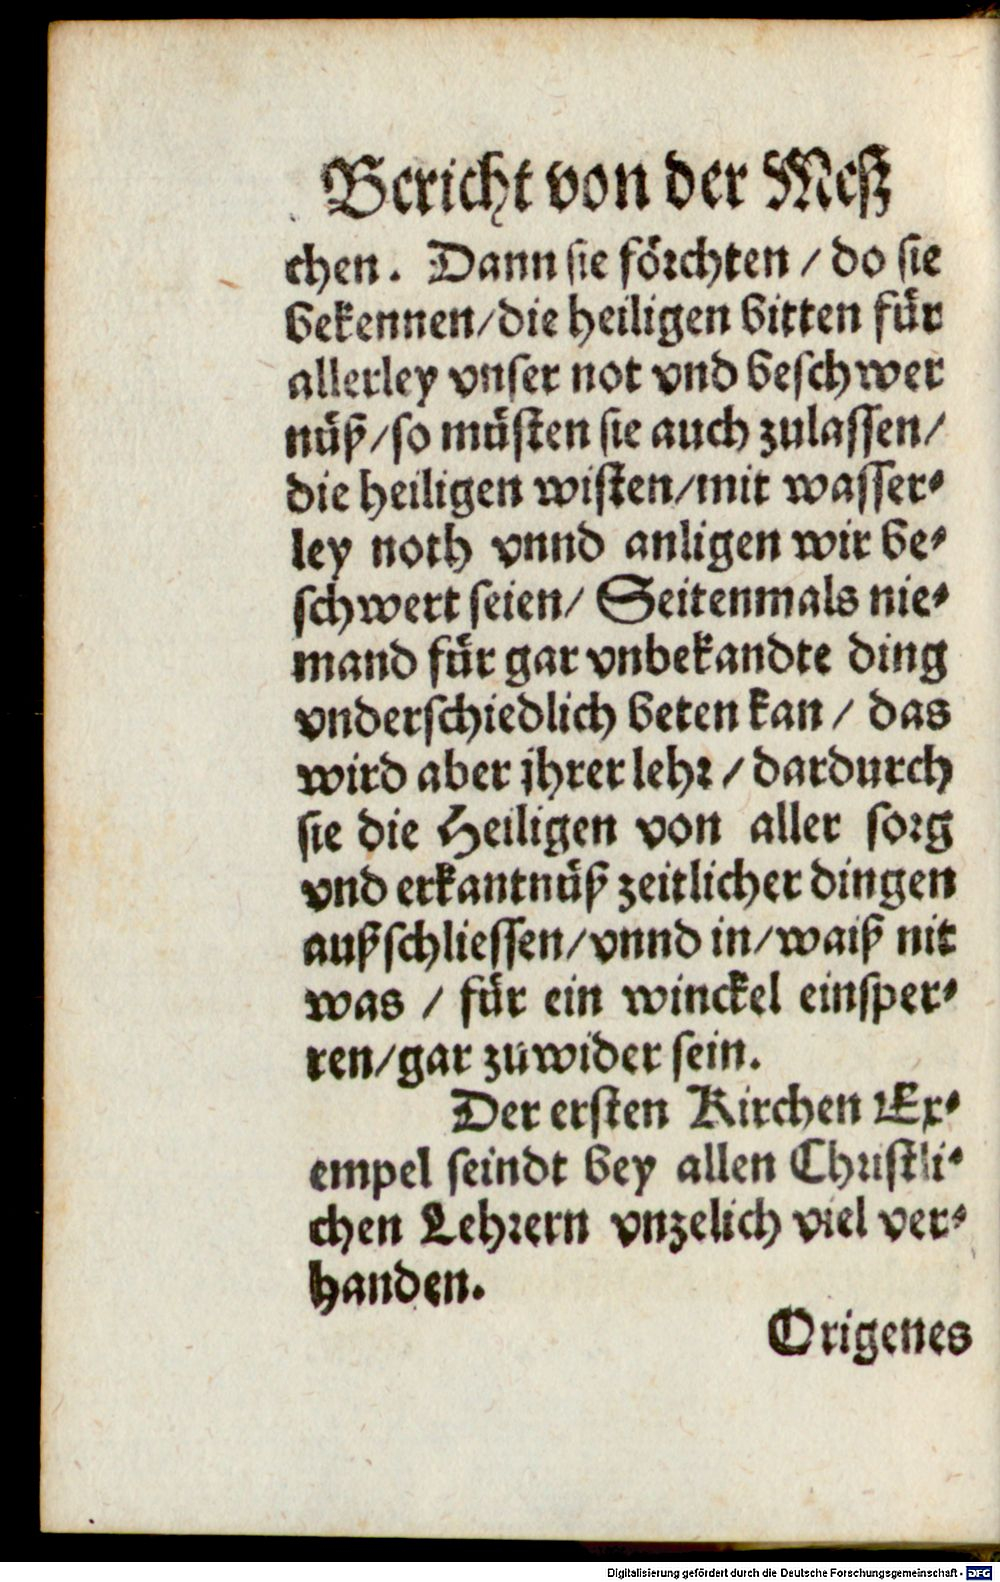 Bericht von der Meß
chen. Dann sie förchten / do sie
bekennen/die heiligen bitten für
allerley vnser not vnd beschwer
nüß/so müsten sie auch zulassen/
die heiligen wisten/mit wasser-
ley noth vnnd anligen wir be-
schwert seien/ Seitenmals nie-
mand für gar vnbekandte ding
vnderschiedlich beten kan / das
wird aber jhrer lehr / dardurch
sie die Heiligen von aller sorg
vnd erkantnüß zeitlicher dingen
außschliessen/vnnd in/waiß nit
was / für ein winckel einsper-
ren/gar zuwider sein.
Der ersten Kirchen Ex-
empel seindt bey allen Christli-
chen Lehrern vnzelich viel ver-
handen.
Origenes
Digitalisierung gefördert durch die Deutsche Forschungsgemeinschaft - DFG